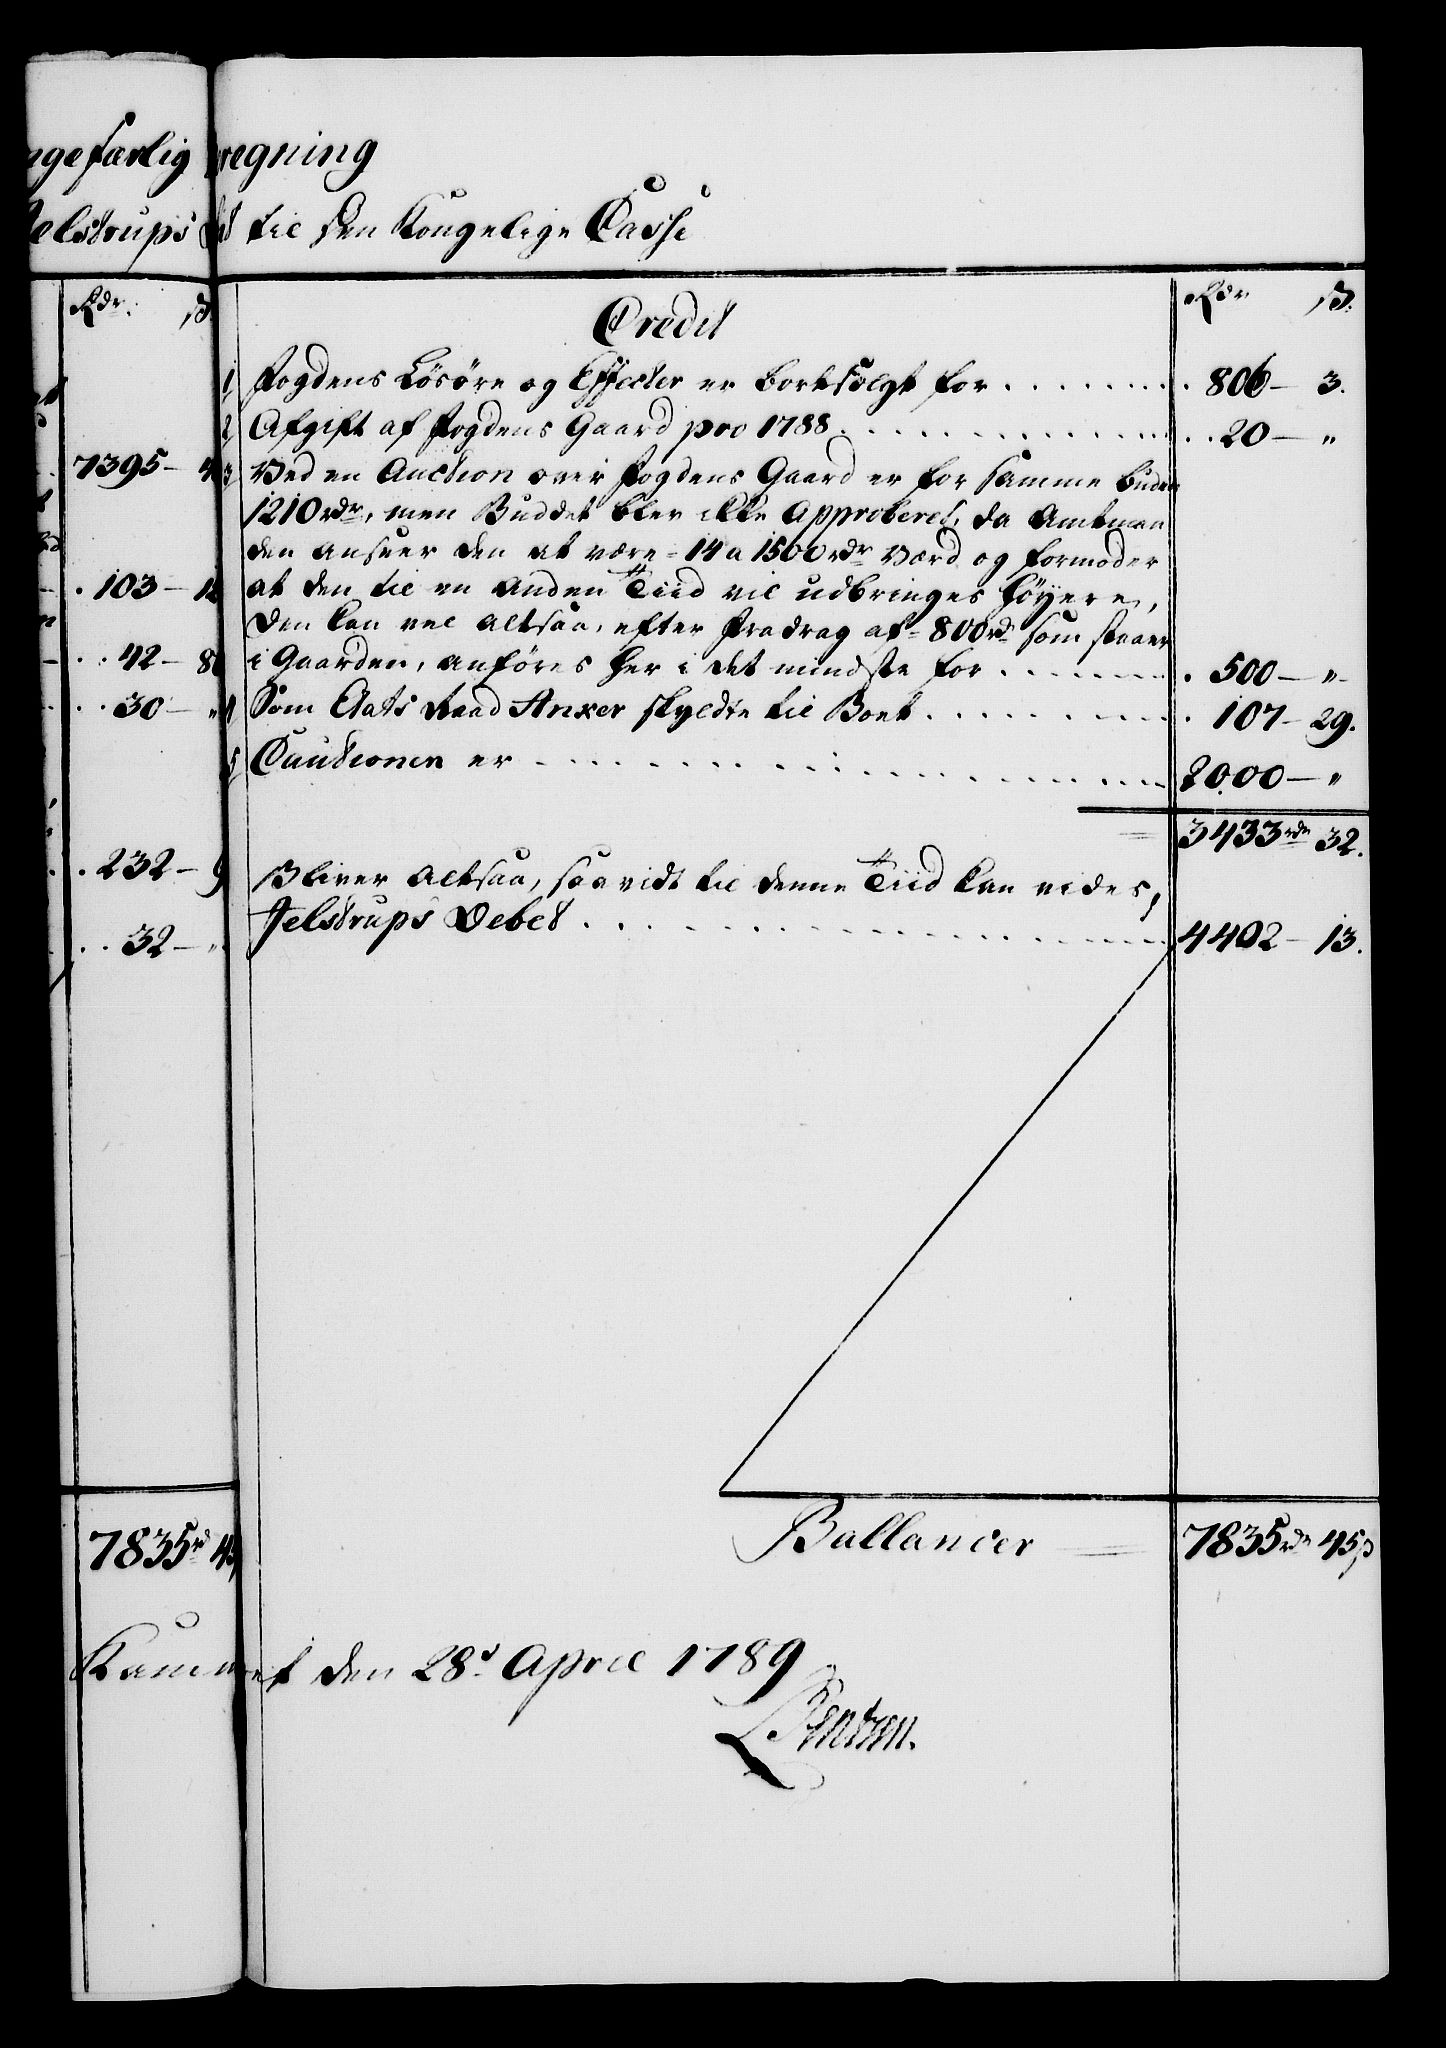 ngefærlig
regning
Jelstrups
til den Kongelige Casse
Rdr. ß.
7395 – 4
. 103 – 12
. . 42 – 8
. . 30 – "
. . 232 – 9
. . 32 – "
7835rd 45
Credit
Rdr ß.
1 Fogdens Lösöre og Effecter er bortsolgt for . . . . . . . 806 – 3.
2 Afgift af Fogdens Gaard pro 1788 . . . . . . . 20 – "
3 Ved en Auction over Fogdens Gaard er for samme buden
1210rdr, men Buddet blev ikke Approberet, da Amtman
den anseer den at være 14 a 1500rdr Værd og formoder
at den til en anden Tiid vil udbringes høyere,
den kan vel altsaa, efter Fradrag af 800rd som staaer
i Gaarden, anføres her i det mindste for . . . . . . . 500 – "
4 Som Etats Raad Anker skyldte til Boet . . . . . . . 107 – 29.
5 Cautionen er . . . . . . . 2000 – "
3433rdr 32.
Bliver altsaa, saavidt til denne Tiid kan vides,
Jelstrups Debet . . . . . . . 4402 – 13.
Ballancer 7835rdr 45ß
Kammeret den 28d April 1789
Bentzen.